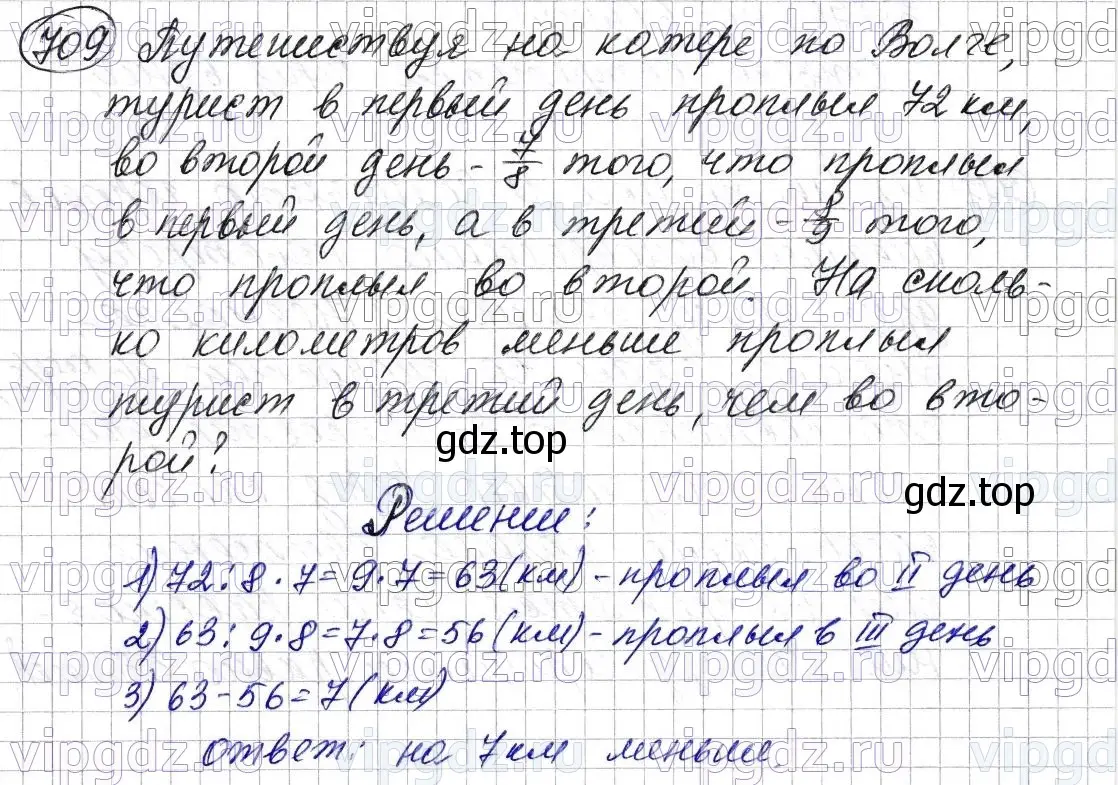 709 Путешествуя на катере по Волге,
турист в первый день проплыл 72 км,
во второй день - 7/8 того, что проплыл
в первый день, а в третий - 8/9 того,
что проплыл во второй. На сколь-
ко километров меньше проплыл
турист в третий день, чем во вто-
рой?
gdz.top
gdz.top
Решение:
1) 72 : 8 · 7 = 9 · 7 = 63 (км) - проплыл во II день
2) 63 : 9 · 8 = 7 · 8 = 56 (км) - проплыл в III день
3) 63 - 56 = 7 (км)
ответ: на 7 км меньше.
vipgdz.ru